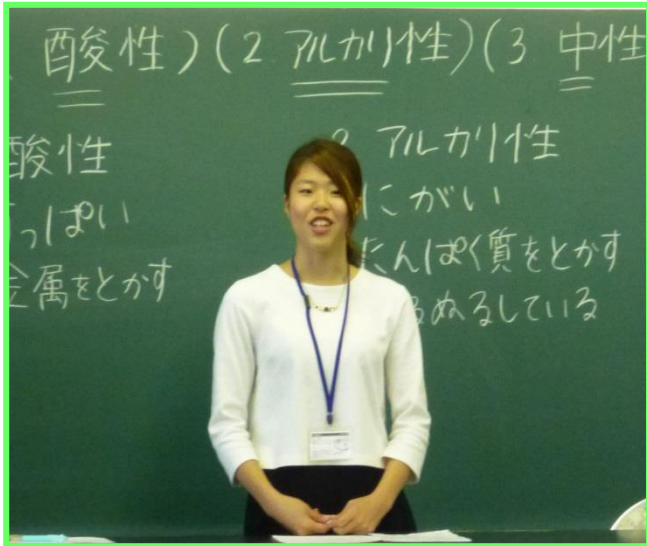 酸性)(2 アルカリ性)(3 中性
酸性
っぱい
金属をとかす
2 アルカリ性
にがい
たんぱく質をとかす
ぬるしている